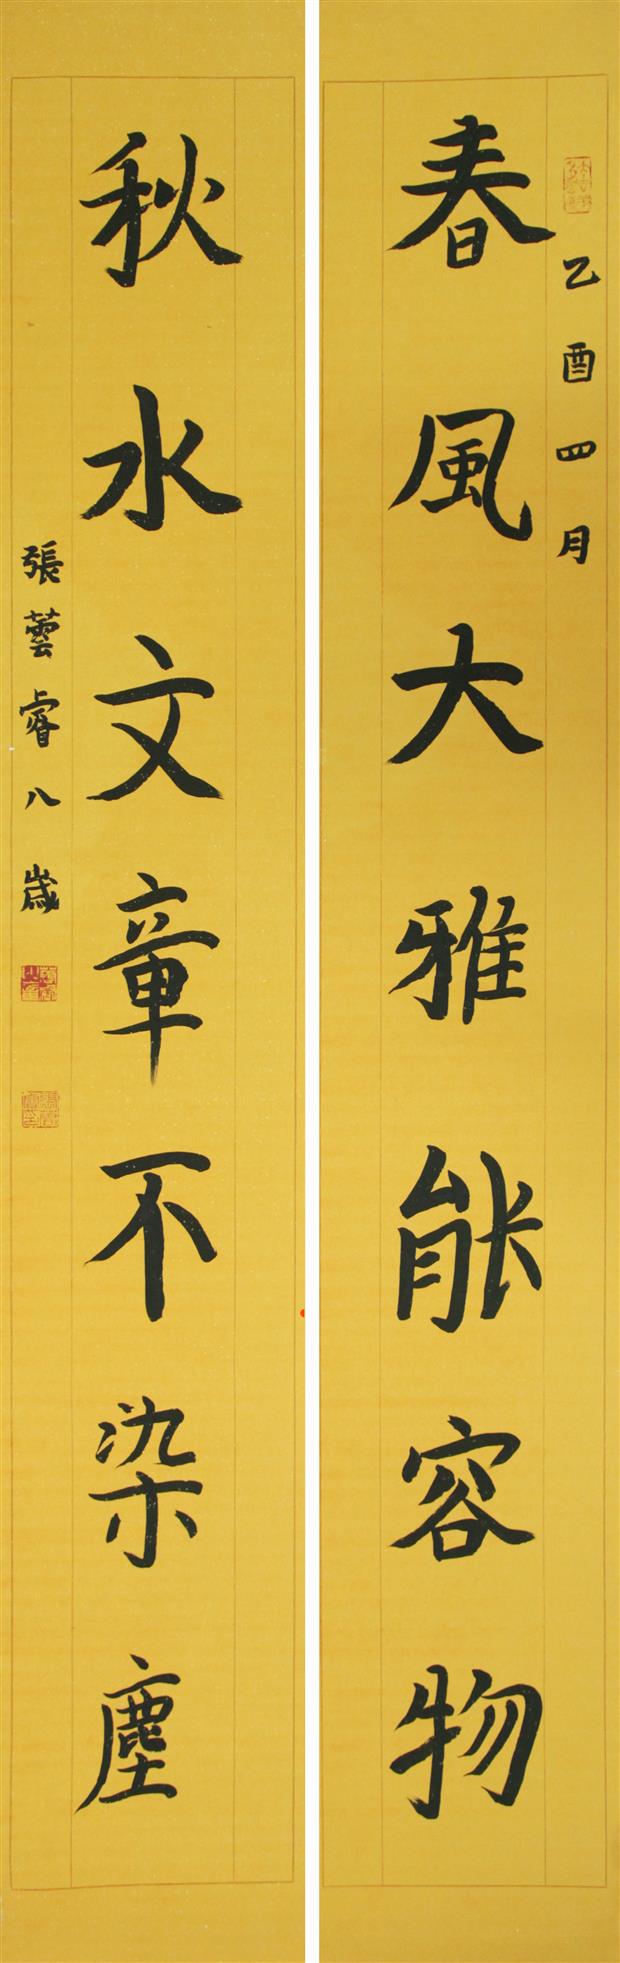 乙酉四月
春風大雅能容物
秋水文章不染塵
張蕓睿八歲